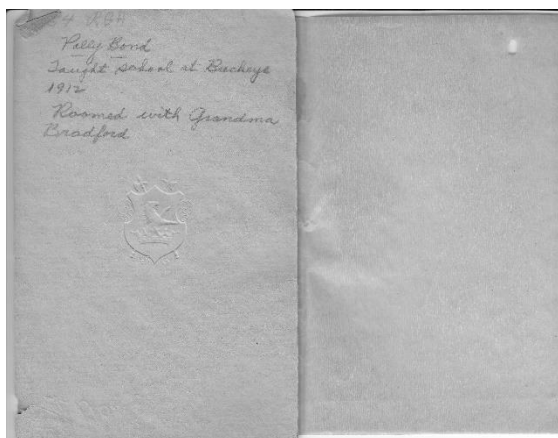 Polly Bond
Taught school at Buckeye
1912
Roomed with Grandma
Bradford